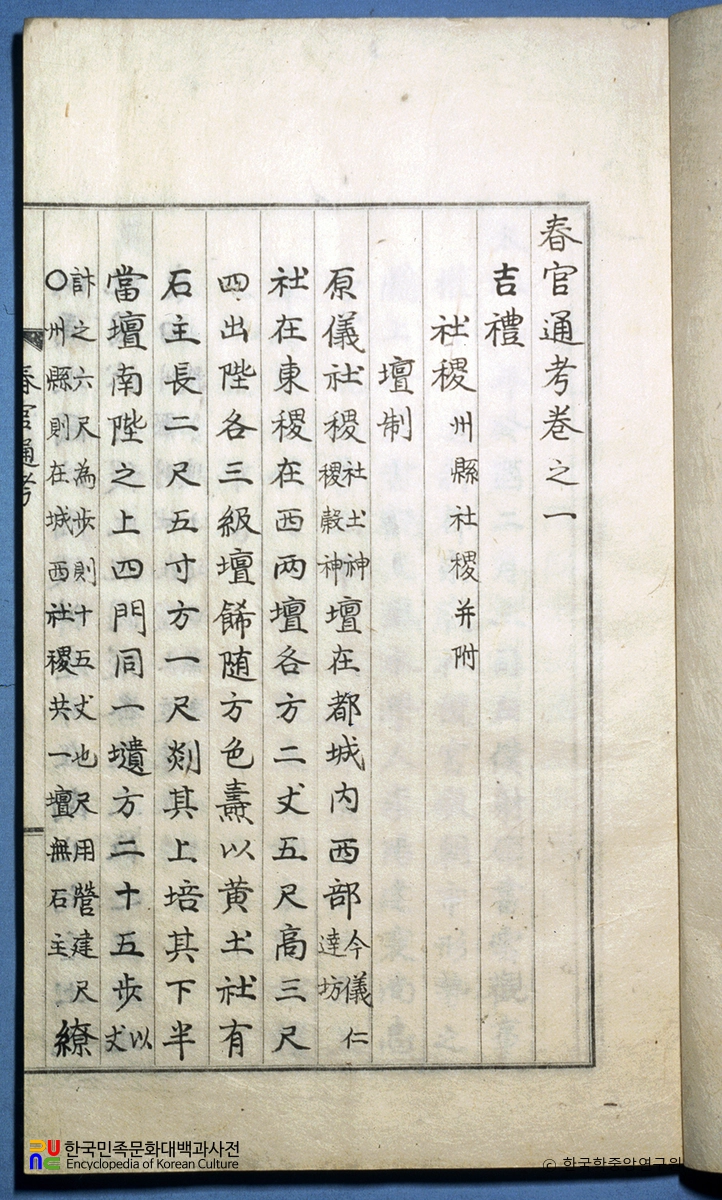 春官通考卷之一
吉禮
社稷州縣社稷并附
壇制
原儀社稷社土神稷穀神壇在都城内西部今儀仁達坊
社在東稷在西兩壇各方二丈五尺高三尺
四出陛各三級壇餙随方色燾以黄土社有
石主長二尺五寸方一尺剡其上培其下半
當壇南陛之上四門同一壝方二十五歩以丈
計之六尺為歩則十五丈地尺用營建尺〇州縣則在城西社稷共一壇無石主繚
春官通考
한국민족문화대백과사전
Encyclopedia of Korean Culture
© 한국학중앙연구원